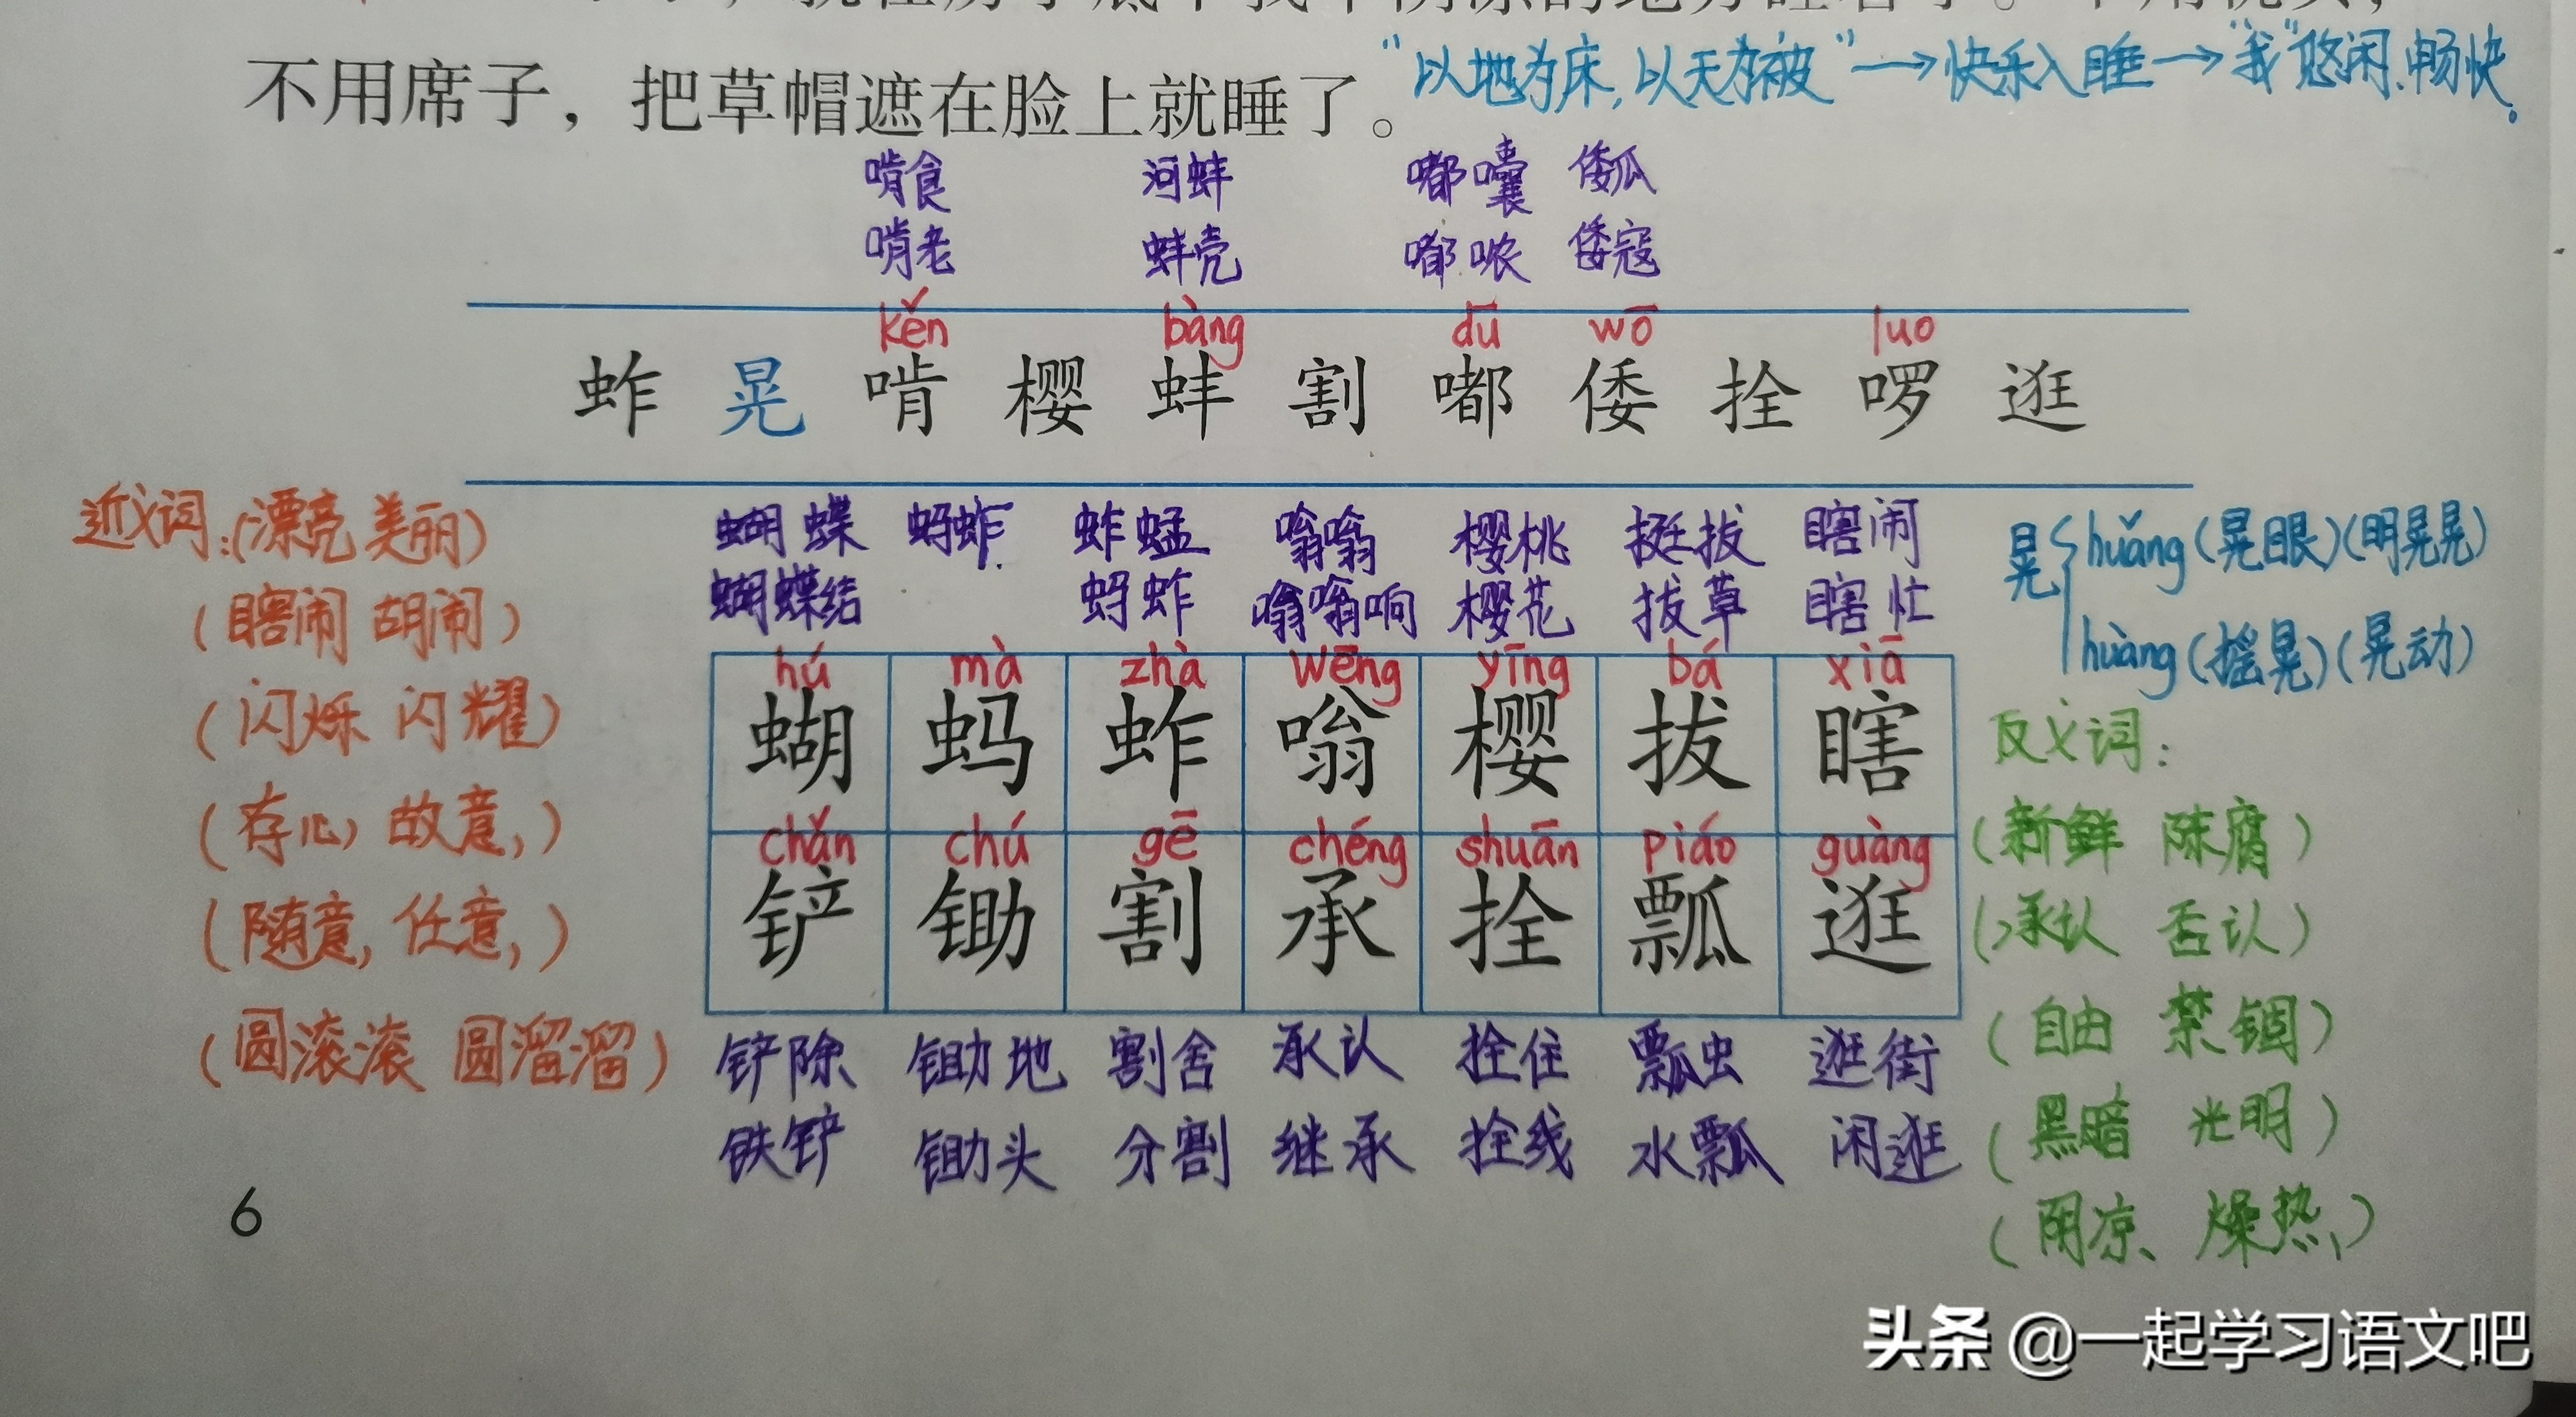 不用席子，把草帽遮在脸上就睡了。
“以地为床,以天为被”→快乐入睡→“我”悠闲、畅快。
啃食 河蚌 嘟囔 倭瓜
啃老 蚌壳 嘟哝 倭寇
kěn bàng dū wō luo
蚱 晃 啃 樱 蚌 割 嘟 倭 拴 啰 逛
近义词:(漂亮 美丽)
(瞎闹 胡闹)
(闪烁 闪耀)
(存心 故意)
(随意 任意)
(圆滚滚 圆溜溜)
蝴蝶 蚂蚱 蚱蜢 嗡嗡 樱桃 挺拔 瞎闹
蝴蝶结 蚂蚱 嗡嗡响 樱花 拔草 瞎忙
hú mà zhà wēng yīng bá xiā
蝴 蚂 蚱 嗡 樱 拔 瞎
chǎn chú gē chéng shuān piáo guàng
铲 锄 割 承 拴 瓢 逛
铲除 锄地 割舍 承认 拴住 瓢虫 逛街
铁铲 锄头 分割 继承 拴线 水瓢 闲逛
晃{huǎng(晃眼)(明晃晃)
huàng(摇晃)(晃动)
反义词:
(新鲜 陈腐)
(承认 否认)
(自由 禁锢)
(黑暗 光明)
(阴凉、燥热)
6
头条 @一起学习语文吧